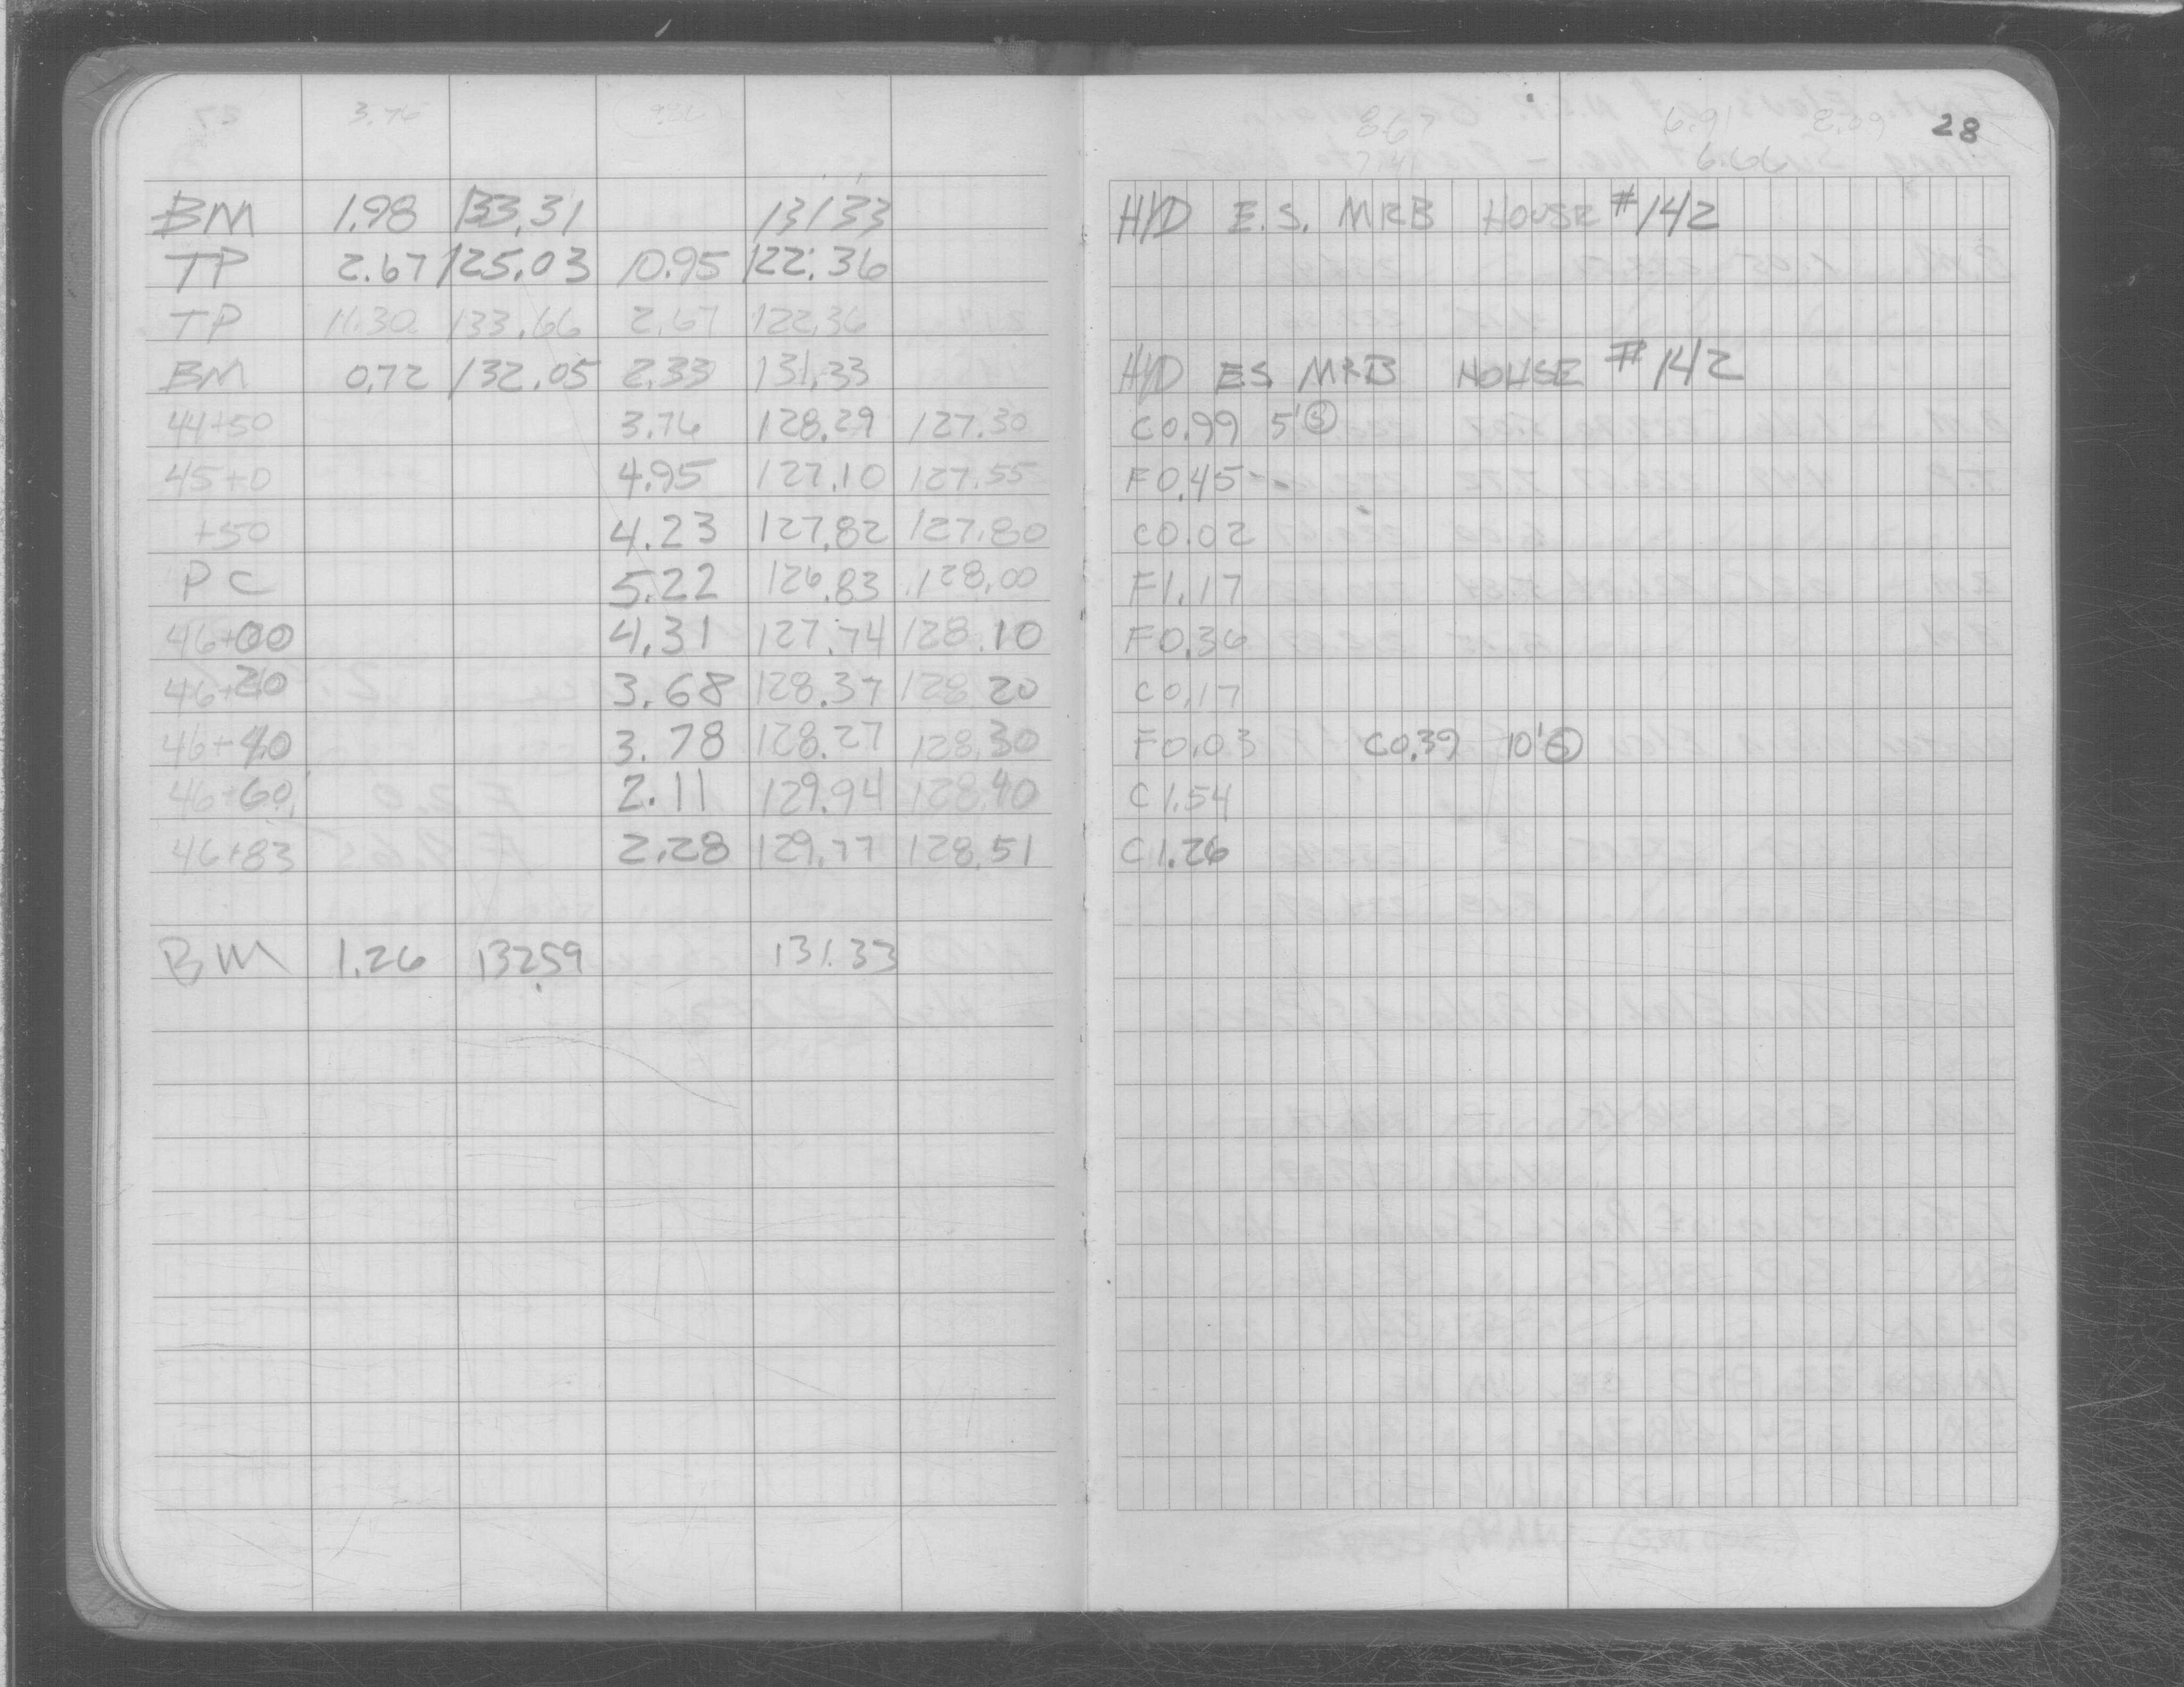 3.76
8.67 6.91 8.09 28
7.41 6.66
BM 1.98 133.31 131.33 HYD E.S. MRB HOUSE #142
TP 2.67 125.03 10.95 122.36
TP 11.30 133.66 2.67 122.36
BM 0.72 132.05 2.33 131.33 HYD E.S. MRB HOUSE #142
44+50 3.76 128.29 127.30 C0.99 5' Ⓢ
45+0 4.95 127.10 127.55 F0.45
+50 4.23 127.82 127.80 C0.02
PC 5.22 126.83 128.00 F1.17
46+00 4.31 127.74 128.10 F0.36
46+20 3.68 128.37 128.20 C0.17
46+40 3.78 128.27 128.30 F0.03 C0.39 10' Ⓢ
46+60 2.11 129.94 128.40 C1.54
46+83 2.28 129.77 128.51 C1.26
BM 1.26 132.59 131.33